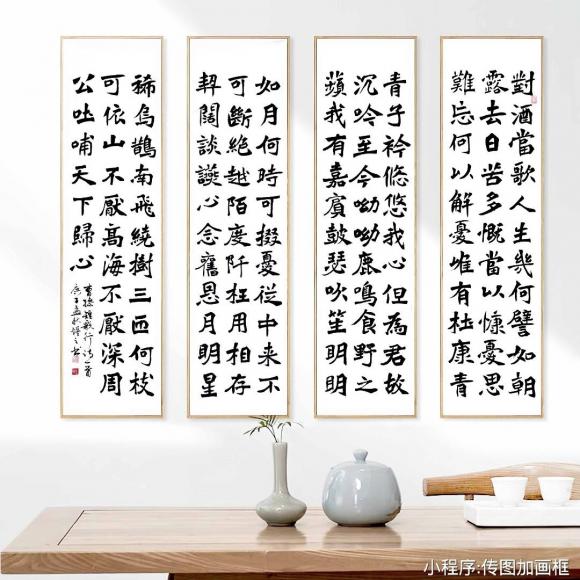 對酒當歌人生幾何譬如朝
露去日苦多慨當以慷憂思
難忘何以解憂唯有杜康青
青子衿悠悠我心但為君故
沉吟至今呦呦鹿鳴食野之
蘋我有嘉賓鼓瑟吹笙明明
如月何時可掇憂從中来不
可斷絕越陌度阡枉用相存
契闊談讌心念舊恩月明星
稀烏鵲南飛繞樹三匝何枝
可依山不厭高海不厭深周
公吐哺天下歸心
曹操短歌行詩一首
庚子孟秋
小程序:传图加画框